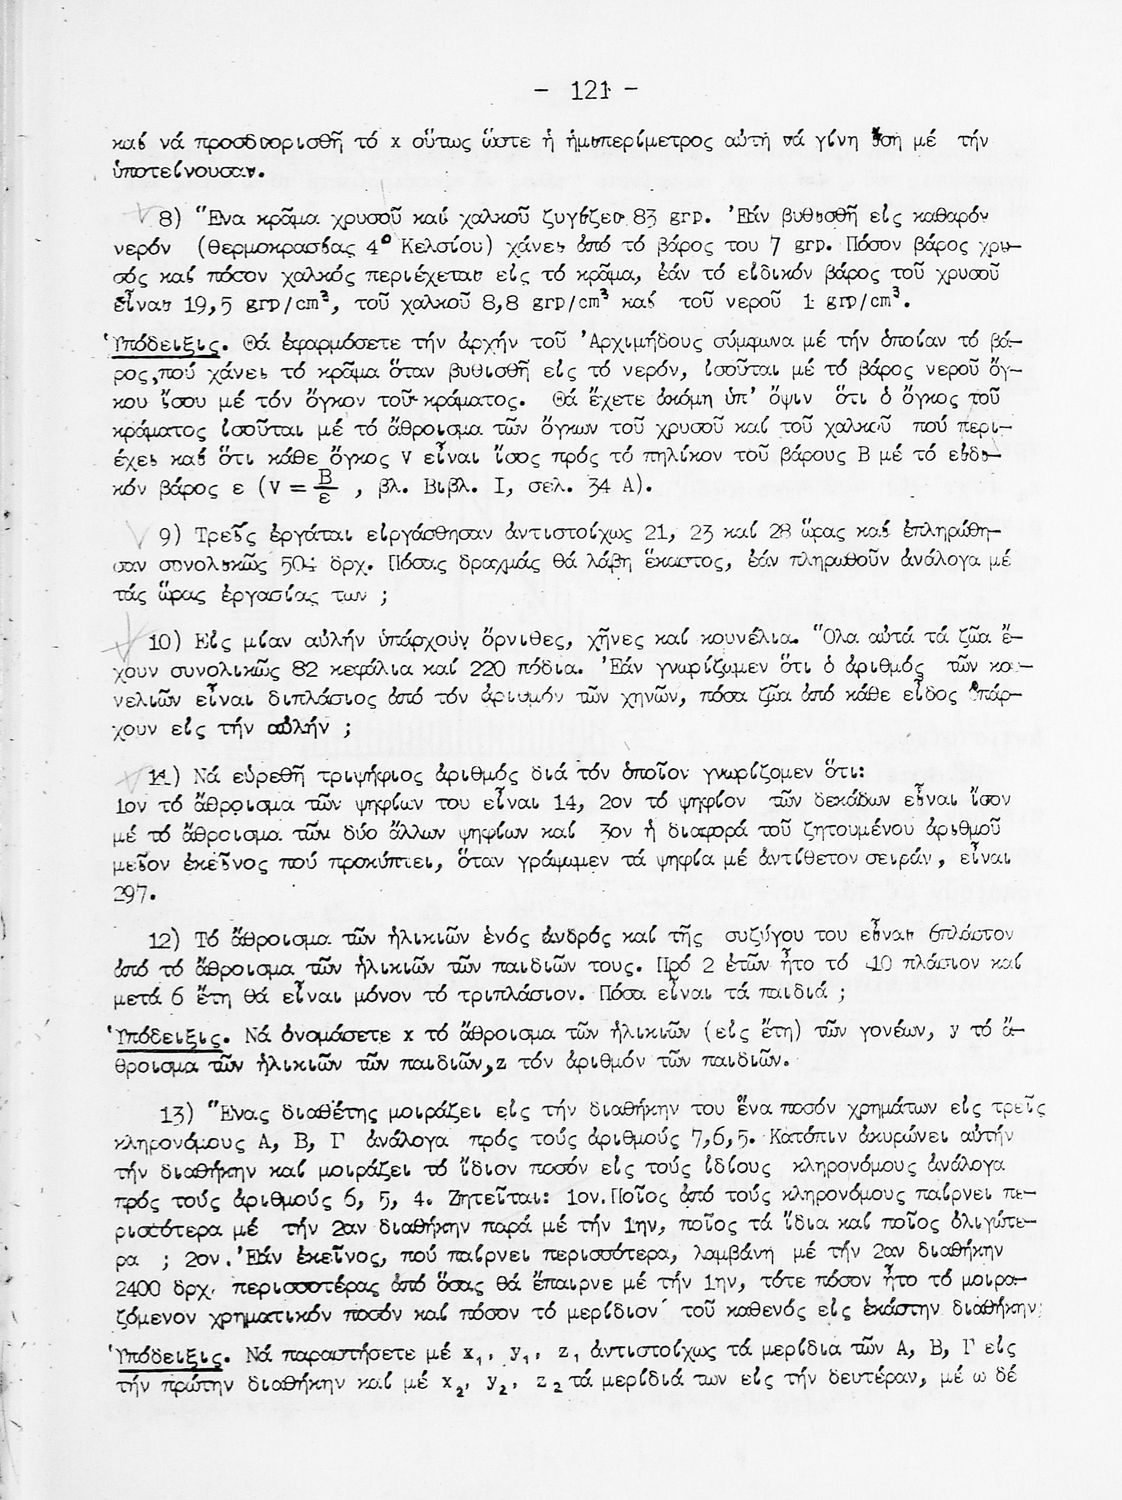 - 121 -
καί νά προσδιορισθῆ τό x οὕτως ὥστε ἡ ἡμιπερίμετρος αὐτή νά γίνη ἴση μέ τήν
ὑποτείνουσαν.
8) Ἕνα κρᾶμα χρυσοῦ καί χαλκοῦ ζυγίζει 83 grp. Ἐάν βυθισθῆ εἰς καθαρόν
νερόν (θερμοκρασίας 4° Κελσίου) χάνει ἀπό τό βάρος του 7 grp. Πόσον βάρος χρυ-
σός καί πόσον χαλκός περιέχεται εἰς τό κρᾶμα, ἐάν τό εἰδικόν βάρος τοῦ χρυσοῦ
εἶναι 19,5 grp/cm³, τοῦ χαλκοῦ 8,8 grp/cm³ καί τοῦ νεροῦ 1 grp/cm³.
Ὑπόδειξις. Θά ἐφαρμόσετε τήν ἀρχήν τοῦ Ἀρχιμήδους σύμφωνα μέ τήν ὁποίαν τό βά-
ρος, πού χάνει τό κρᾶμα ὅταν βυθισθῆ εἰς τό νερόν, ἰσοῦται μέ τό βάρος νεροῦ ὄγ-
κου ἴσου μέ τόν ὄγκον τοῦ κράματος. Θά ἔχετε ἀκόμη ὑπ' ὄψιν ὅτι ὁ ὄγκος τοῦ
κράματος ἰσοῦται μέ τό ἄθροισμα τῶν ὄγκων τοῦ χρυσοῦ καί τοῦ χαλκοῦ πού περι-
έχει καί ὅτι κάθε ὄγκος V εἶναι ἴσος πρός τό πηλίκον τοῦ βάρους Β μέ τό εἰδι-
κόν βάρος ε (V = Β/ε , βλ. Βιβλ. Ι, σελ. 34 Α).
9) Τρεῖς ἐργάται εἰργάσθησαν ἀντιστοίχως 21, 23 καί 28 ὥρας καί ἐπληρώθη-
σαν συνολικῶς 504 δρχ. Πόσας δραχμάς θά λάβη ἕκαστος, ἐάν πληρωθοῦν ἀνάλογα μέ
τάς ὥρας ἐργασίας των ;
10) Εἰς μίαν αὐλήν ὑπάρχουν ὄρνιθες, χῆνες καί κουνέλια. Ὅλα αὐτά τά ζῶα ἔ-
χουν συνολικῶς 82 κεφάλια καί 220 πόδια. Ἐάν γνωρίζωμεν ὅτι ὁ ἀριθμός τῶν κου-
νελιῶν εἶναι διπλάσιος ἀπό τόν ἀριθμόν τῶν χηνῶν, πόσα ζῶα ἀπό κάθε εἶδος ὑπάρ-
χουν εἰς τήν αὐλήν ;
11) Νά εὑρεθῆ τριψήφιος ἀριθμός διά τόν ὁποῖον γνωρίζομεν ὅτι:
1ον τό ἄθροισμα τῶν ψηφίων του εἶναι 14, 2ον τό ψηφίον τῶν δεκάδων εἶναι ἴσον
μέ τό ἄθροισμα τῶν δύο ἄλλων ψηφίων καί 3ον ἡ διαφορά τοῦ ζητουμένου ἀριθμοῦ
μεῖον ἐκεῖνος πού προκύπτει, ὅταν γράψωμεν τά ψηφία μέ ἀντίθετον σειράν, εἶναι
297.
12) Τό ἄθροισμα τῶν ἡλικιῶν ἑνός ἀνδρός καί τῆς συζύγου του εἶναι 6πλάσιον
ἀπό τό ἄθροισμα τῶν ἡλικιῶν τῶν παιδιῶν τους. Πρό 2 ἐτῶν ἦτο τό 10 πλάσιον καί
μετά 6 ἔτη θά εἶναι μόνον τό τριπλάσιον. Πόσα εἶναι τά παιδιά ;
Ὑπόδειξις. Νά ὀνομάσετε x τό ἄθροισμα τῶν ἡλικιῶν (εἰς ἔτη) τῶν γονέων, y τό ἄ-
θροισμα τῶν ἡλικιῶν τῶν παιδιῶν, z τόν ἀριθμόν τῶν παιδιῶν.
13) Ἕνας διαθέτης μοιράζει εἰς τήν διαθήκην του ἕνα ποσόν χρημάτων εἰς τρεῖς
κληρονόμους Α, Β, Γ ἀνάλογα πρός τούς ἀριθμούς 7,6,5. Κατόπιν ἀκυρώνει αὐτήν
τήν διαθήκην καί μοιράζει τό ἴδιον ποσόν εἰς τούς ἰδίους κληρονόμους ἀνάλογα
πρός τούς ἀριθμούς 6, 5, 4. Ζητεῖται: 1ον. Ποῖος ἀπό τούς κληρονόμους παίρνει πε-
ρισσότερα μέ τήν 2αν διαθήκην παρά μέ τήν 1ην, ποῖος τά ἴδια καί ποῖος ὀλιγώτε-
ρα ; 2ον. Ἐάν ἐκεῖνος, πού παίρνει περισσότερα, λαμβάνη μέ τήν 2αν διαθήκην
2400 δρχ. περισσοτέρας ἀπό ὅσας θά ἔπαιρνε μέ τήν 1ην, τότε πόσον ἦτο τό μοιρα-
ζόμενον χρηματικόν ποσόν καί πόσον τό μερίδιον τοῦ καθενός εἰς ἑκάστην διαθήκην;
Ὑπόδειξις. Νά παραστήσετε μέ x₁, y₁, z₁ ἀντιστοίχως τά μερίδια τῶν Α, Β, Γ εἰς
τήν πρώτην διαθήκην καί μέ x₂, y₂, z₂ τά μερίδιά των εἰς τήν δευτέραν, μέ ω δέ